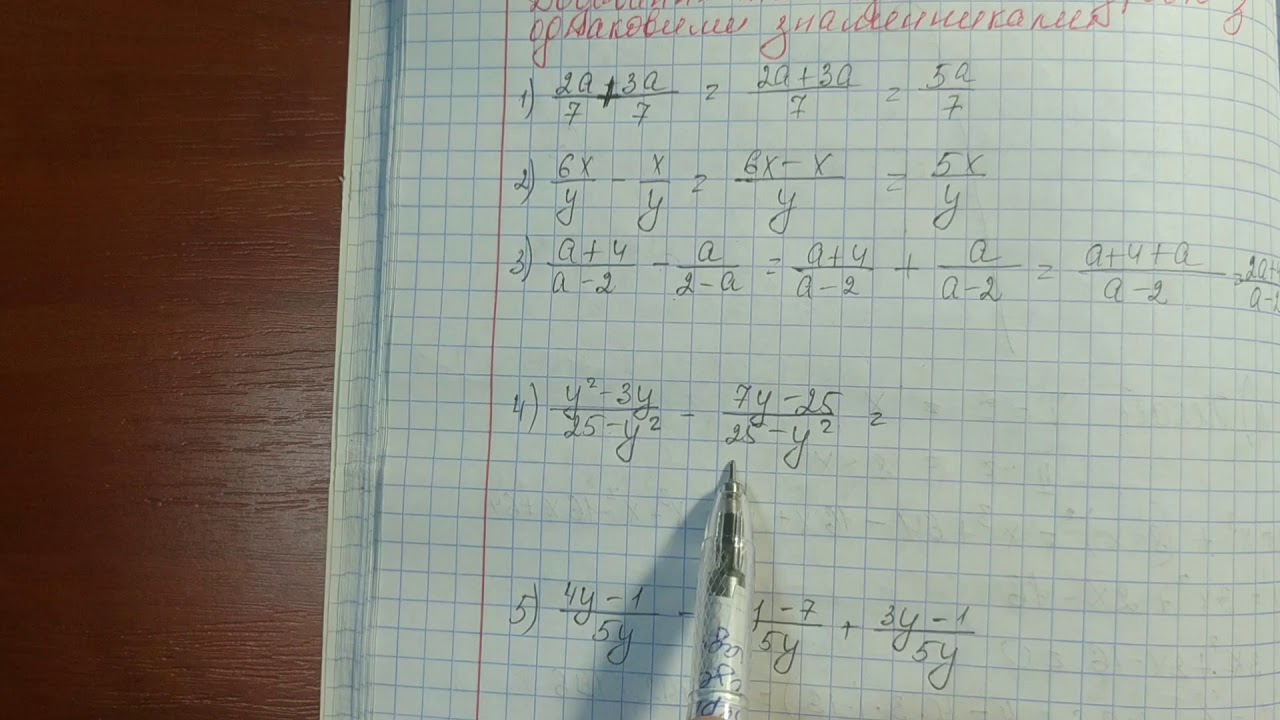 однаковими знаменниками
1) 2a/7 + 3a/7 = (2a+3a)/7 = 5a/7
2) 6x/y - x/y = (6x-x)/y = 5x/y
3) (a+4)/(a-2) - a/(2-a) = (a+4)/(a-2) + a/(a-2) = (a+4+a)/(a-2) =
4) (y²-3y)/(25-y²) - (7y-25)/(25-y²) =
5) (4y-1)/5y - 1-7/5y + (3y-1)/5y